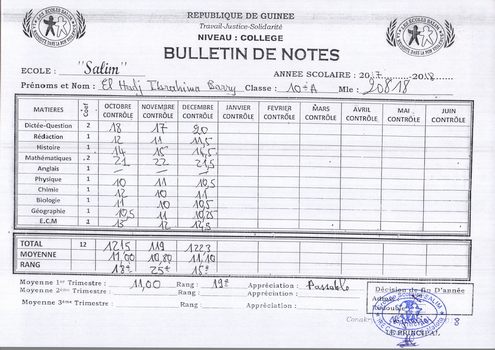 REPUBLIQUE DE GUINEE
Travail-Justice-Solidarité
NIVEAU : COLLEGE
BULLETIN DE NOTES
ECOLE : "Salim" ANNEE SCOLAIRE : 2017......2018
Prénoms et Nom : El Hadj Ibrahima Barry Classe : 10e A Mle : 20818
MATIERES Coef OCTOBRE CONTRÔLE NOVEMBRE CONTRÔLE DECEMBRE CONTRÔLE JANVIER CONTRÔLE FEVRIER CONTRÔLE MARS CONTRÔLE AVRIL CONTRÔLE MAI CONTRÔLE JUIN CONTRÔLE
Dictée-Question 2 18 17 20
Rédaction 1 12 11 11,5
Histoire 1 14 15 14,5
Mathématiques 2 21 22 21,5
Anglais 1 — — —
Physique 1 10 11 10,5
Chimie 1 12 10 11
Biologie 1 11 10 10,5
Géographie 1 10,5 11 10,5
E.C.M 1 13 12 12,5
TOTAL 12 121,5 119 122,3
MOYENNE 11,00 10,80 11,10
RANG 18e 25e 15e
Moyenne 1er Trimestre : 11,00 Rang : 19e Appréciation : Passable
Moyenne 2ème Trimestre : Rang : Appréciation :
Moyenne 3ème Trimestre : Rang : Appréciation :
Décision de fin D'année
LE PRINCIPAL